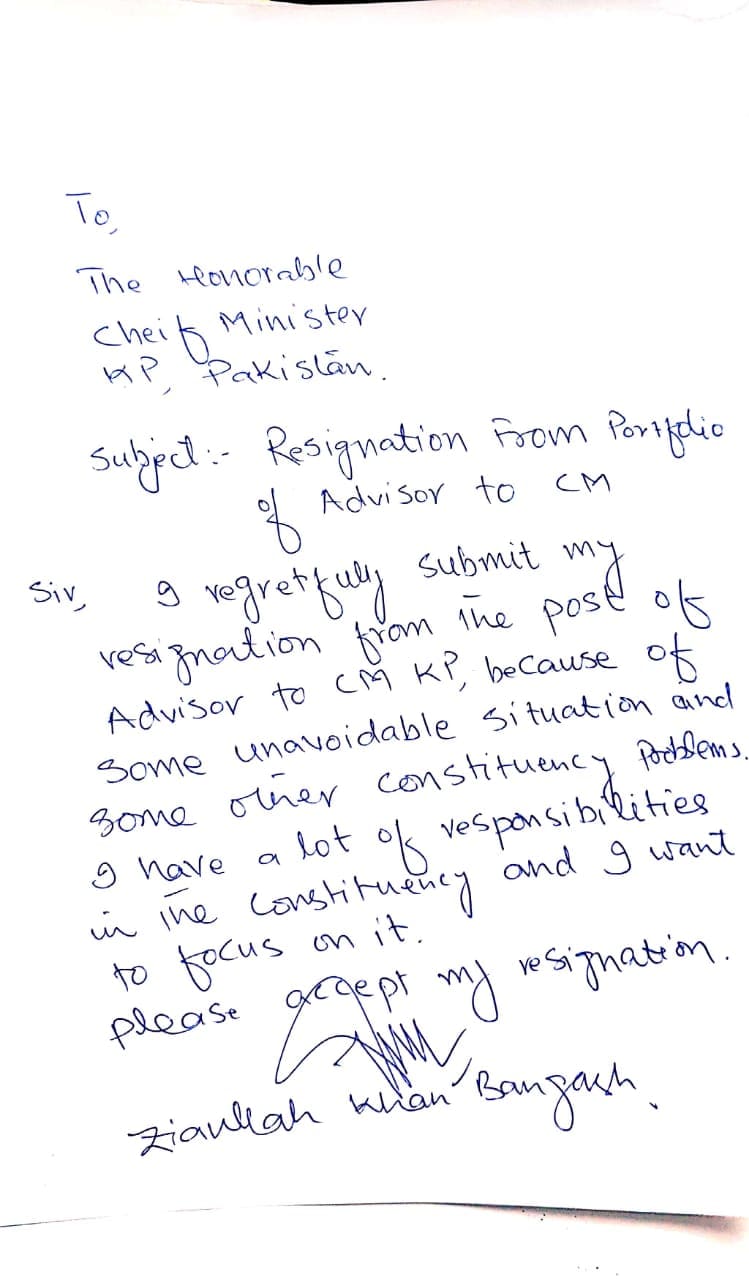 To,
The Honorable
Cheif Minister
KP, Pakistan.
Subject:- Resignation From Portfolio
of Advisor to CM
Sir, I regretfully submit my
resignation from the post of
Advisor to CM KP, because of
some unavoidable situation and
some other constituency problems.
I have a lot of responsibilities
in the constituency and I want
to focus on it.
please accept my resignation.
Ziaullah Khan Bangash.